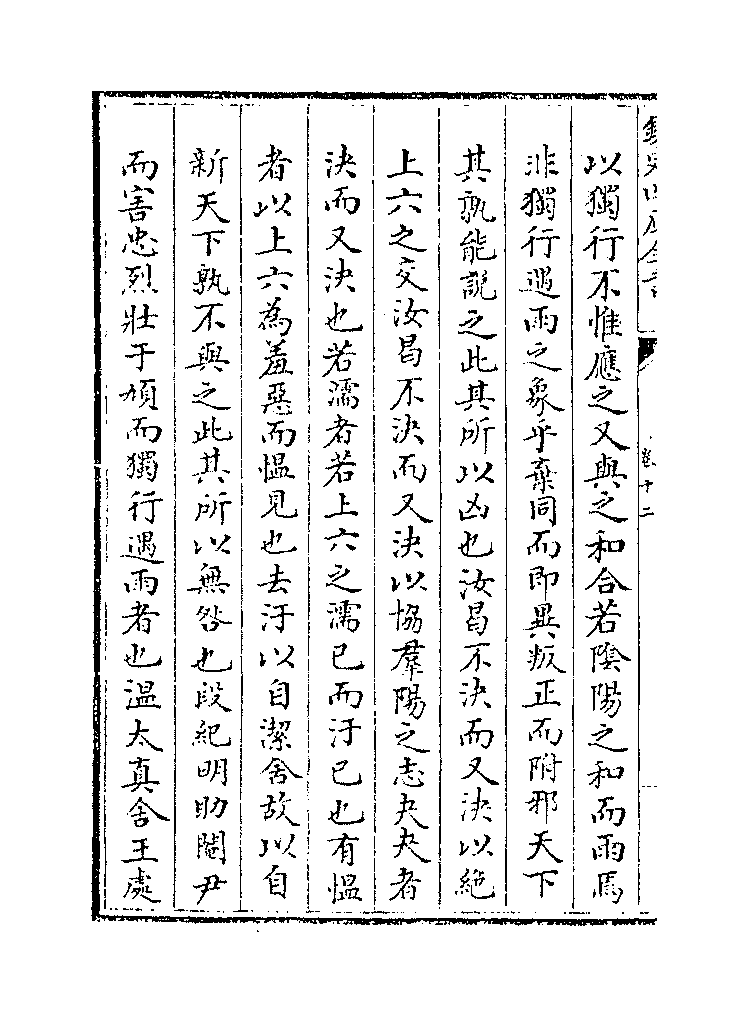 欽定四庫全書
卷十二
以獨行不惟應之又與之和合若陰陽之和而雨焉
非獨行遇雨之象乎棄同而即異叛正而附邪天下
其孰能説之此其所以凶也汝曷不決而又決以絶
上六之交汝曷不決而又決以協羣陽之志夬夬者
決而又決也若濡者若上六之濡已而汙已也有愠
者以上六為羞惡而愠見也去汙以自潔舍故以自
新天下孰不與之此其所以無咎也段紀明助閹尹
而害忠烈壯于頄而獨行遇雨者也温太真舍王處